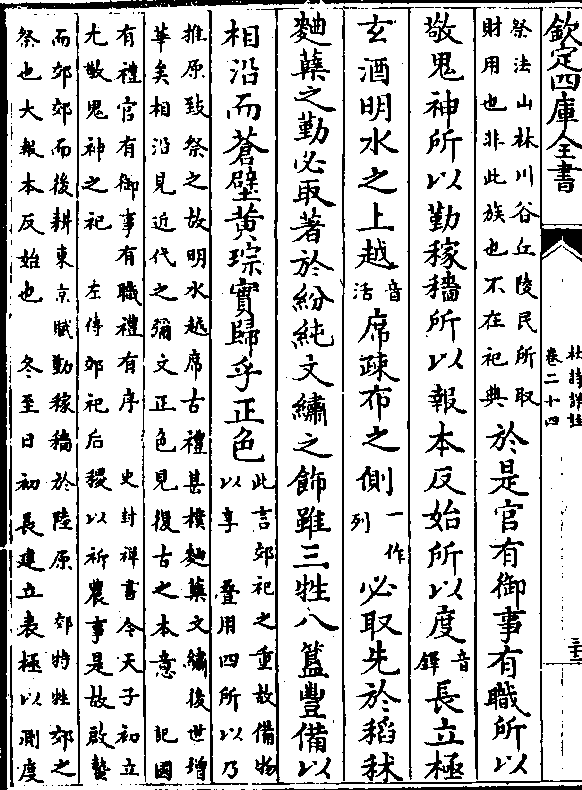 欽定四庫全書
杜詩詳註
卷二十四
三十三
祭法山林川谷丘陵民所取
財用也非此族也不在祀典
於是官有御事有職所以
敬鬼神所以勤稼穡所以報本反始所以度
音
鐸
長立極
玄酒明水之上越
音
活
席疎布之側
一作
列
必取先於稻秫
麴蘖之勤必取著於紛純文繡之飾雖三牲八簋豐備以
相沿而蒼璧黃琮實歸乎正色
此言郊祀之重故備物
以享 疊用四所以乃
推原致祭之故明水越席古禮甚樸麴蘖文繡後世增
華矣相沿見近代之彌文正色見復古之本意 記國
有禮官有御事有職禮有序 史封禪書今天子初立
尤敬鬼神之祀 左傳郊祀后稷以祈農事是故啟蟄
而郊郊而後耕東京賦勤稼穡於陸原 郊特牲郊之
祭也大報本反始也 冬至日初長建立表極以測度